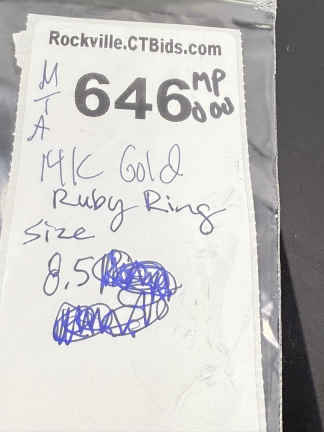 Rockville.CTBids.com
M
T
A
646
MP
14K Gold
Ruby Ring
Size
8.5